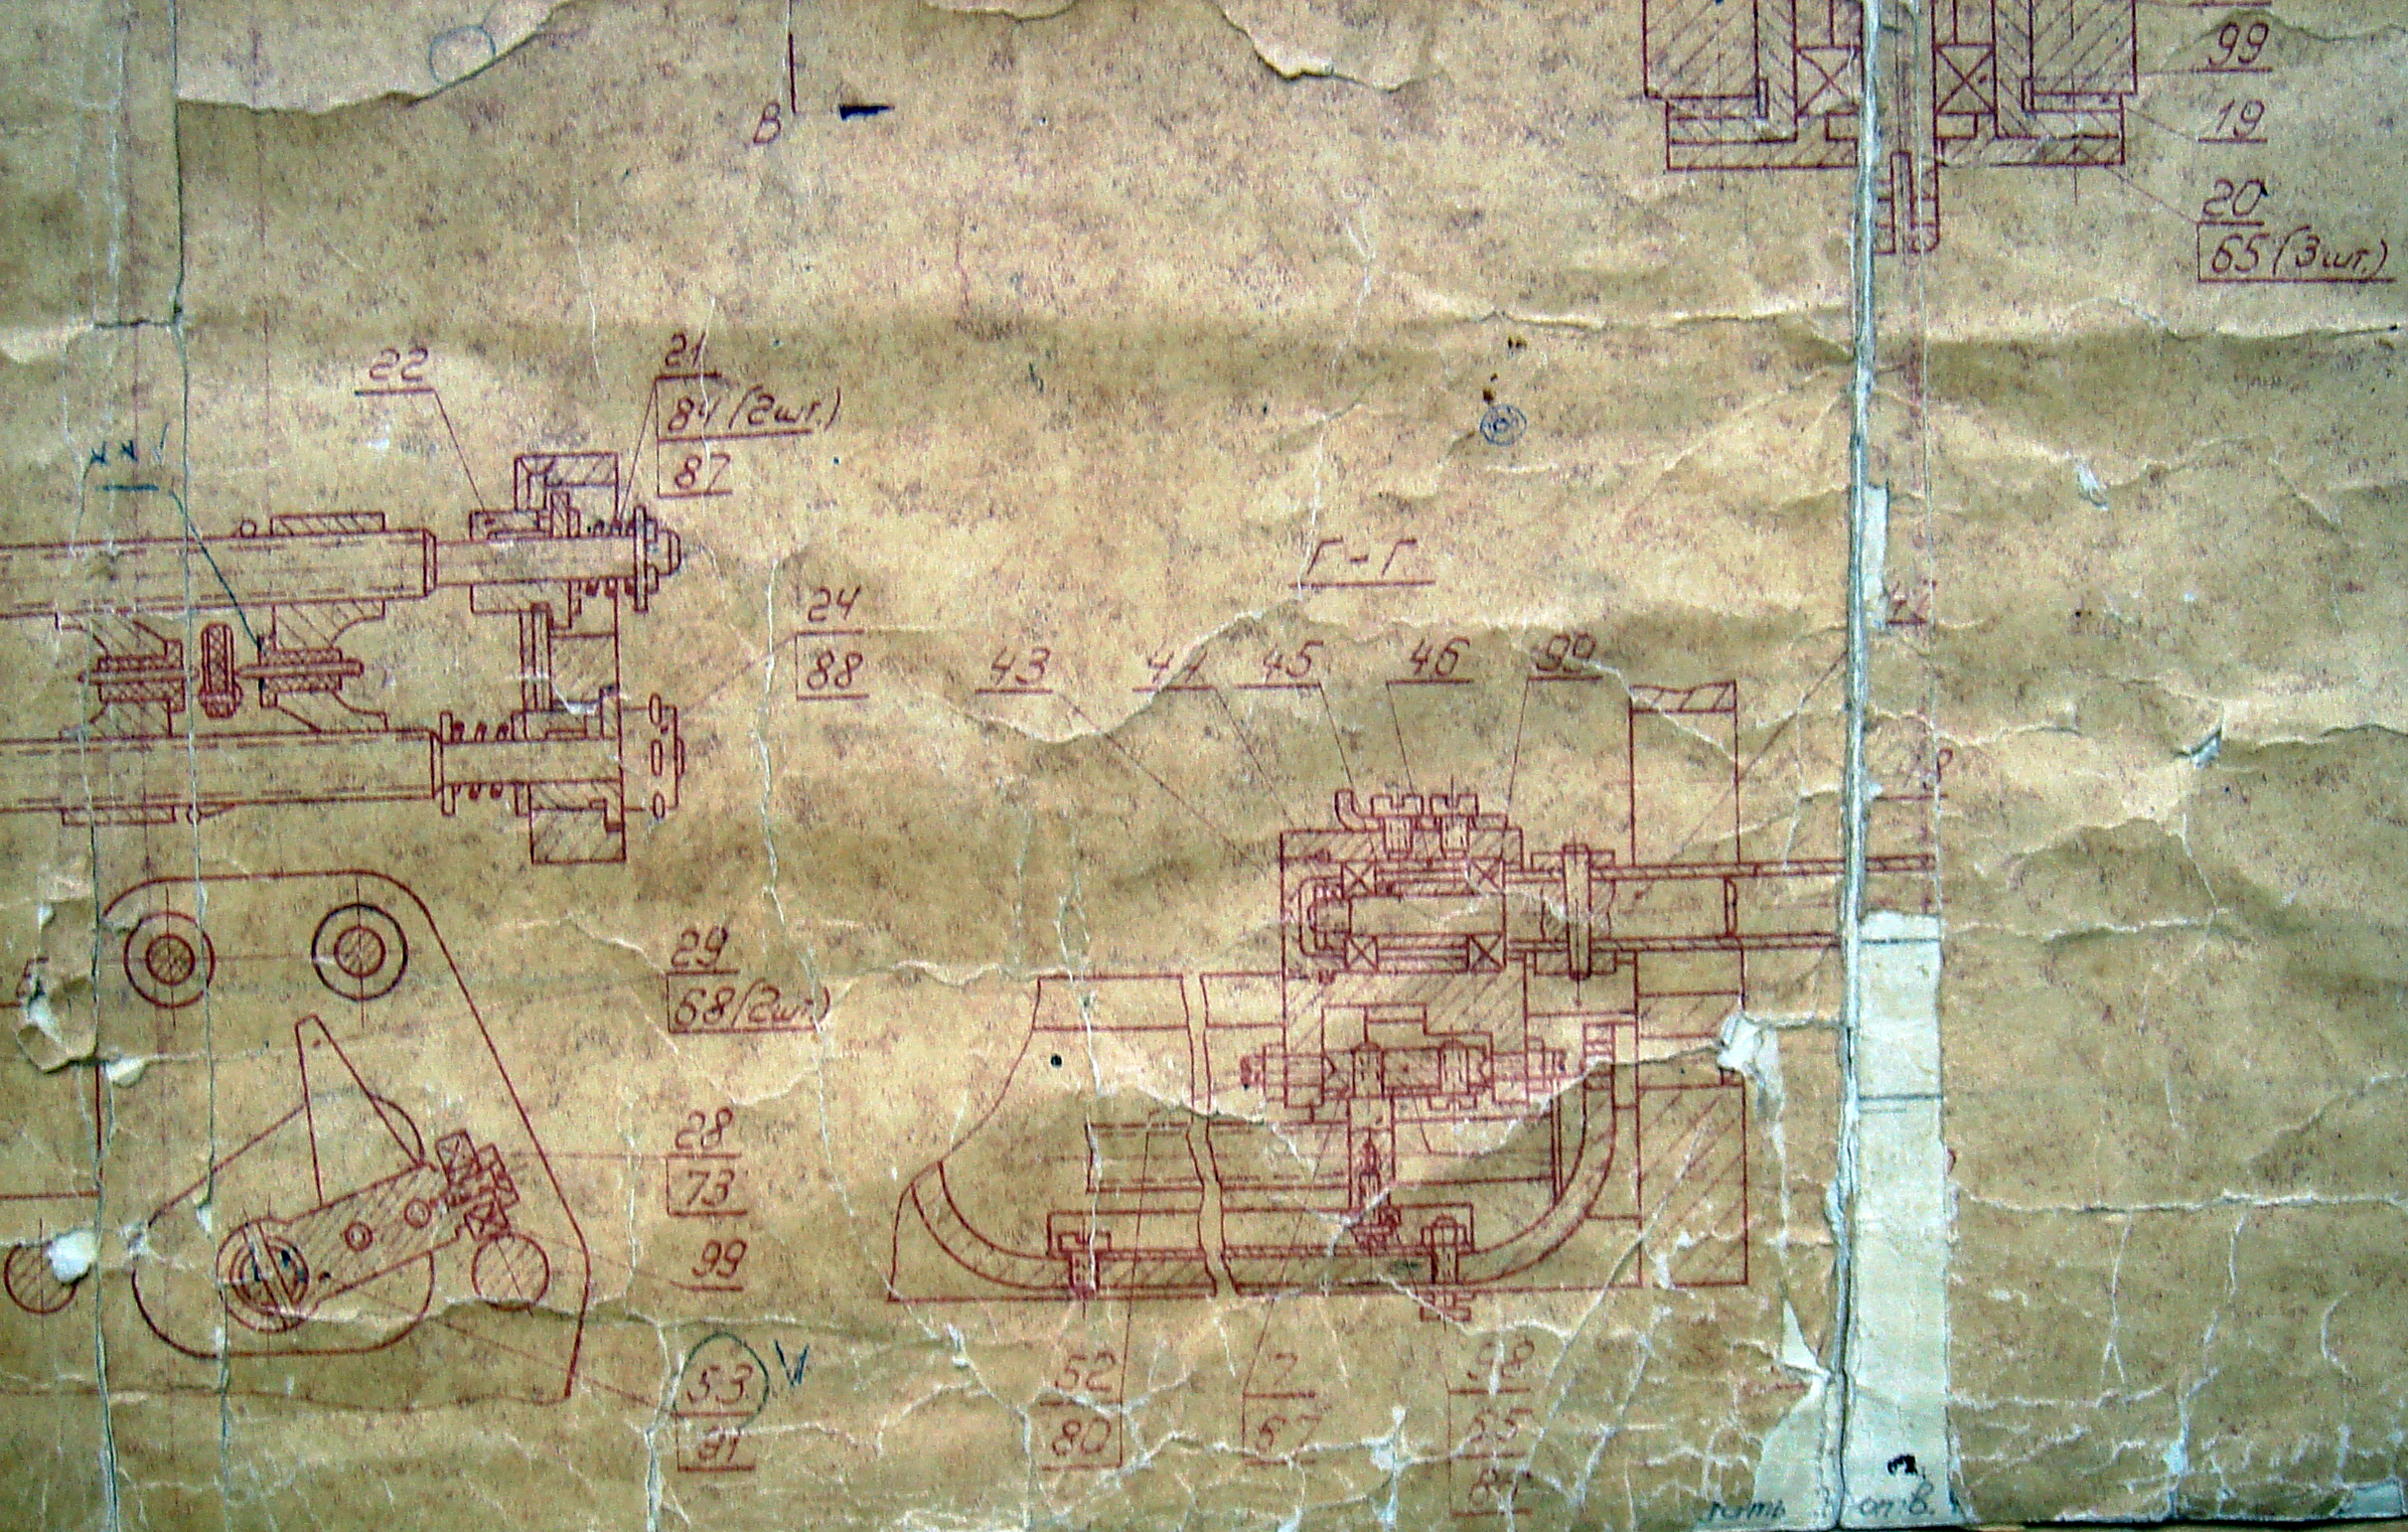 В
99
19
20
65 (3 шт.)
22
21
84 (2 шт.)
87
Г - Г
24
88
43
44
45
46
99
29
68 (2 шт.)
28
73
99
53
81
52
80
7
67
98
65
84
отв.